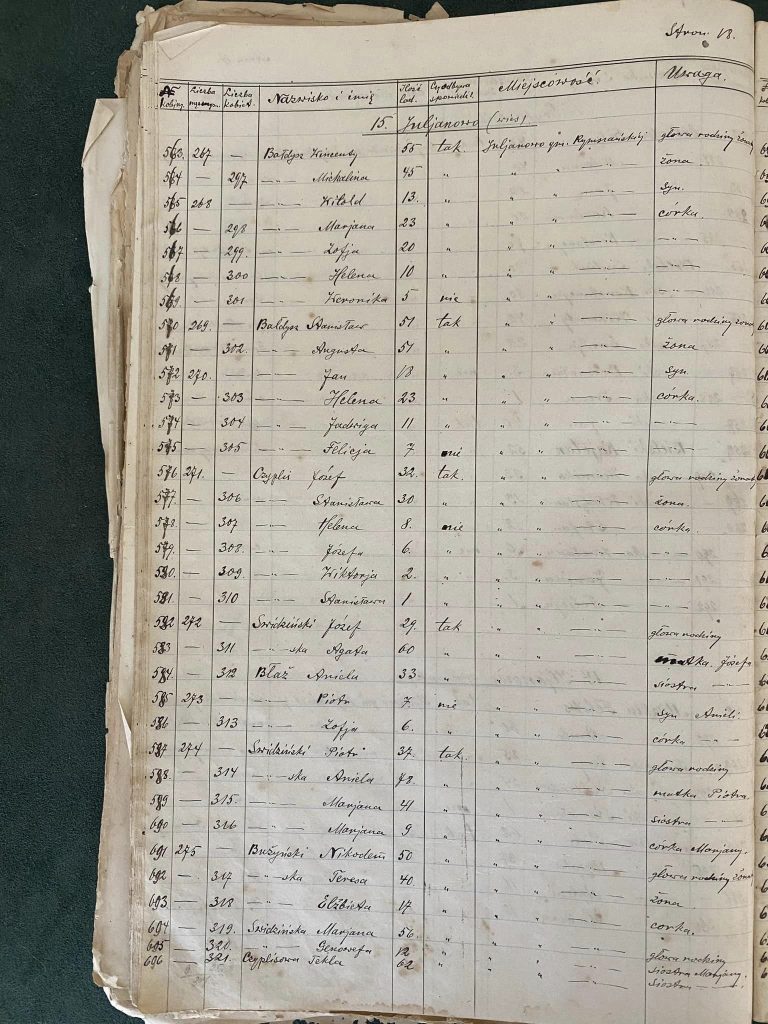 Stron. 18.
№ kobiny. Liczba mężczyzn. Liczba kobiet. Nazwisko i imię Ilość lat. Czy odbywa spowiedź. Miejscowość. Uwaga.
15. Juljanowo (wieś)
563. 267 — Bałdysz Wincenty 55 tak. Juljanowo gm. głowa rodziny żonaty
564 — 297 —„— Michalina 45 „ „ „ —„— żona
565 268 — —„— Witold 13. „ „ „ —„— syn.
566 — 298 —„— Marjana 23 „ „ „ —„— córka.
567 — 299. —„— Zofja 20 „ „ „ —„— —„—
568 — 300 —„— Helena 10 „ „ „ —„— —„—
569. — 301 —„— Weronika 5 nie „ „ —„— —„—
570 269. — Bałdysz Stanisław 51 tak „ „ —„— głowa rodziny żonaty
571 — 302. —„— Augusta 51 „ „ „ —„— żona
572 270. — —„— Jan 18 „ „ „ —„— syn.
573 — 303 —„— Helena 23. „ „ „ —„— córka.
574 — 304 —„— Jadwiga 11 „ „ „ —„— —„—
575 — 305 —„— Felicja 7 nie „ „ —„— —„—
576 271. — Czyplis Józef 32. tak. „ „ —„— głowa rodziny żonaty
577. — 306 —„— Stanisława 30 „ „ „ —„— żona.
578. — 307 —„— Helena 8. nie „ „ —„— córka.
579. — 308. —„— Józefa 6. „ „ „ —„— —„—
580. — 309. —„— Wiktorja 2. „ „ „ —„— —„—
581. — 310 —„— Stanisława 1 „ „ „ —„— —„—
582 272 — Swidziński Józef 29. tak „ „ —„— głowa rodziny
583 — 311 —„— ska Agata 60 „ „ „ —„— matka Józefa
584. — 312 Błaż Aniela 33 „ „ „ —„— siostra —„—
585 273 — —„— Piotr 7. nie „ „ —„— syn Anieli.
586 — 313 —„— Zofja 6. „ „ „ —„— córka —„—
587 274 — Swidziński Piotr 37. tak. „ „ —„— głowa rodziny
588. — 314 —„— ska Aniela 78. „ „ „ —„— matka Piotra.
589 — 315. —„— Marjana 41 „ „ „ —„— siostra —„—
690 — 316 —„— Marjana 9 „ „ „ —„— córka Marjany.
691 275 — Bużyński Nikodem 50 „ „ „ —„— głowa rodziny żonaty
692 — 317 —„— ska Teresa 40. „ „ „ —„— żona.
693 — 318 —„— Elżbieta 17 „ „ „ —„— córka.
694 — 319. Swidzińska Marjana 56. „ „ „ —„— głowa rodziny
695 — 320. —„— Genowefa 12 „ „ „ —„— siostra Marjany.
696 — 321. Czyplisowa Tekla 62 „ „ „ —„— siostra —„—